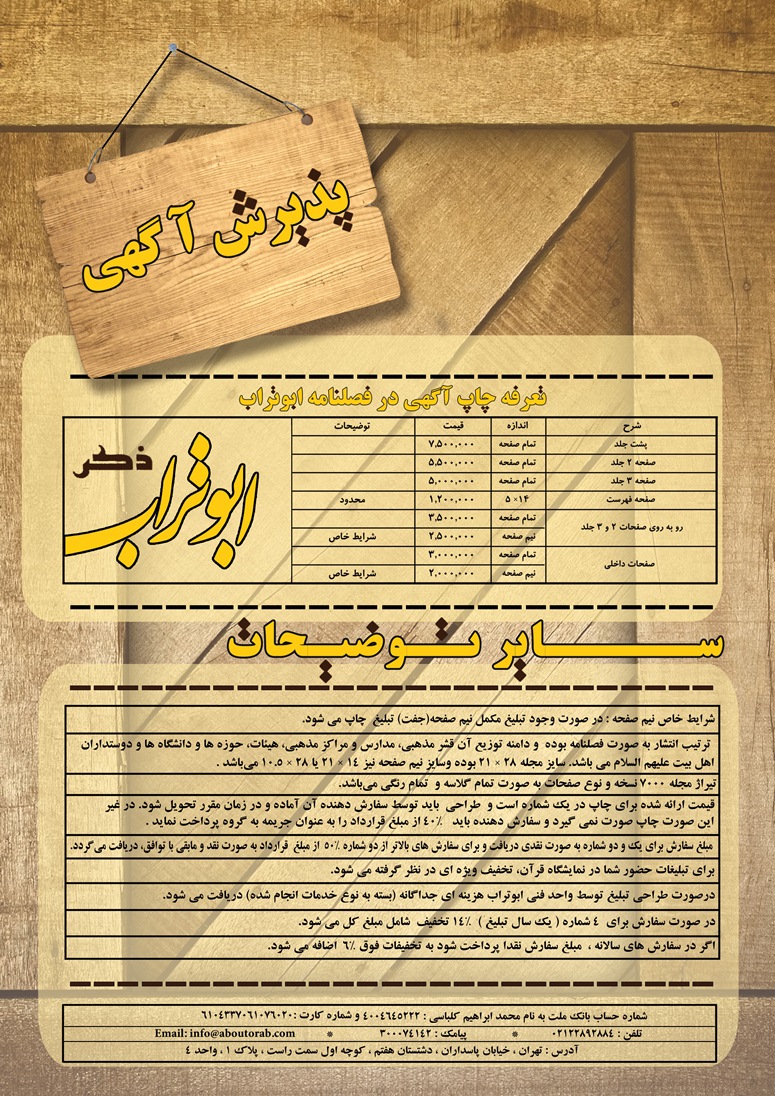 پذیرش آگهی
تعرفه چاپ آگهی در فصلنامه ابوتراب
شرح اندازه قیمت توضیحات
پشت جلد تمام صفحه ۷,۵۰۰,۰۰۰
صفحه ۲ جلد تمام صفحه ۵,۵۰۰,۰۰۰
صفحه ۳ جلد تمام صفحه ۵,۰۰۰,۰۰۰
صفحه فهرست ۱۴× ۵ ۱,۲۰۰,۰۰۰ محدود
رو به روی صفحات ۲ و ۳ جلد تمام صفحه ۳,۵۰۰,۰۰۰
نیم صفحه ۲,۵۰۰,۰۰۰ شرایط خاص
صفحات داخلی تمام صفحه ۳,۰۰۰,۰۰۰
نیم صفحه ۲,۰۰۰,۰۰۰ شرایط خاص
ذکر
ابوتراب
سایر توضیحات
شرایط خاص نیم صفحه : در صورت وجود تبلیغ مکمل نیم صفحه(جفت) تبلیغ چاپ می شود.
ترتیب انتشار به صورت فصلنامه بوده و دامنه توزیع آن قشر مذهبی، مدارس و مراکز مذهبی، هیئات، حوزه ها و دانشگاه ها و دوستداران
اهل بیت علیهم السلام می باشد. سایز مجله ۲۸ × ۲۱ بوده وسایز نیم صفحه نیز ۱۴ × ۲۱ یا ۲۸ × ۱۰.۵ می‌باشد .
تیراژ مجله ۷۰۰۰ نسخه و نوع صفحات به صورت تمام گلاسه و تمام رنگی می‌باشد.
قیمت ارائه شده برای چاپ در یک شماره است و طراحی باید توسط سفارش دهنده آن آماده و در زمان مقرر تحویل شود. در غیر
این صورت چاپ صورت نمی گیرد و سفارش دهنده باید ۴۰٪ از مبلغ قرارداد را به عنوان جریمه به گروه پرداخت نماید .
مبلغ سفارش برای یک و دو شماره به صورت نقدی دریافت و برای سفارش های بالاتر از دو شماره ۵۰٪ از مبلغ قرارداد به صورت نقد و مابقی با توافق، دریافت می‌گردد.
برای تبلیغات حضور شما در نمایشگاه قرآن، تخفیف ویژه ای در نظر گرفته می شود.
درصورت طراحی تبلیغ توسط واحد فنی ابوتراب هزینه ای جداگانه (بسته به نوع خدمات انجام شده) دریافت می شود.
در صورت سفارش برای ۴ شماره ( یک سال تبلیغ ) ۱۴٪ تخفیف شامل مبلغ کل می شود.
اگر در سفارش های سالانه ، مبلغ سفارش نقدا پرداخت شود به تخفیفات فوق ۶٪ اضافه می شود.
شماره حساب بانک ملت به نام محمد ابراهیم کلباسی : ۴۰۰۴۶۴۵۲۲۲ و شماره کارت : ۶۱۰۴۳۳۷۰۶۱۰۷۶۰۲۰
تلفن : ۰۲۱۲۲۸۹۲۸۸۴ * پیامک : ۳۰۰۰۷۴۱۴۲ * Email: info@aboutorab.com
آدرس : تهران ، خیابان پاسداران ، دشتستان هفتم ، کوچه اول سمت راست ، پلاک ۱ ، واحد ۴